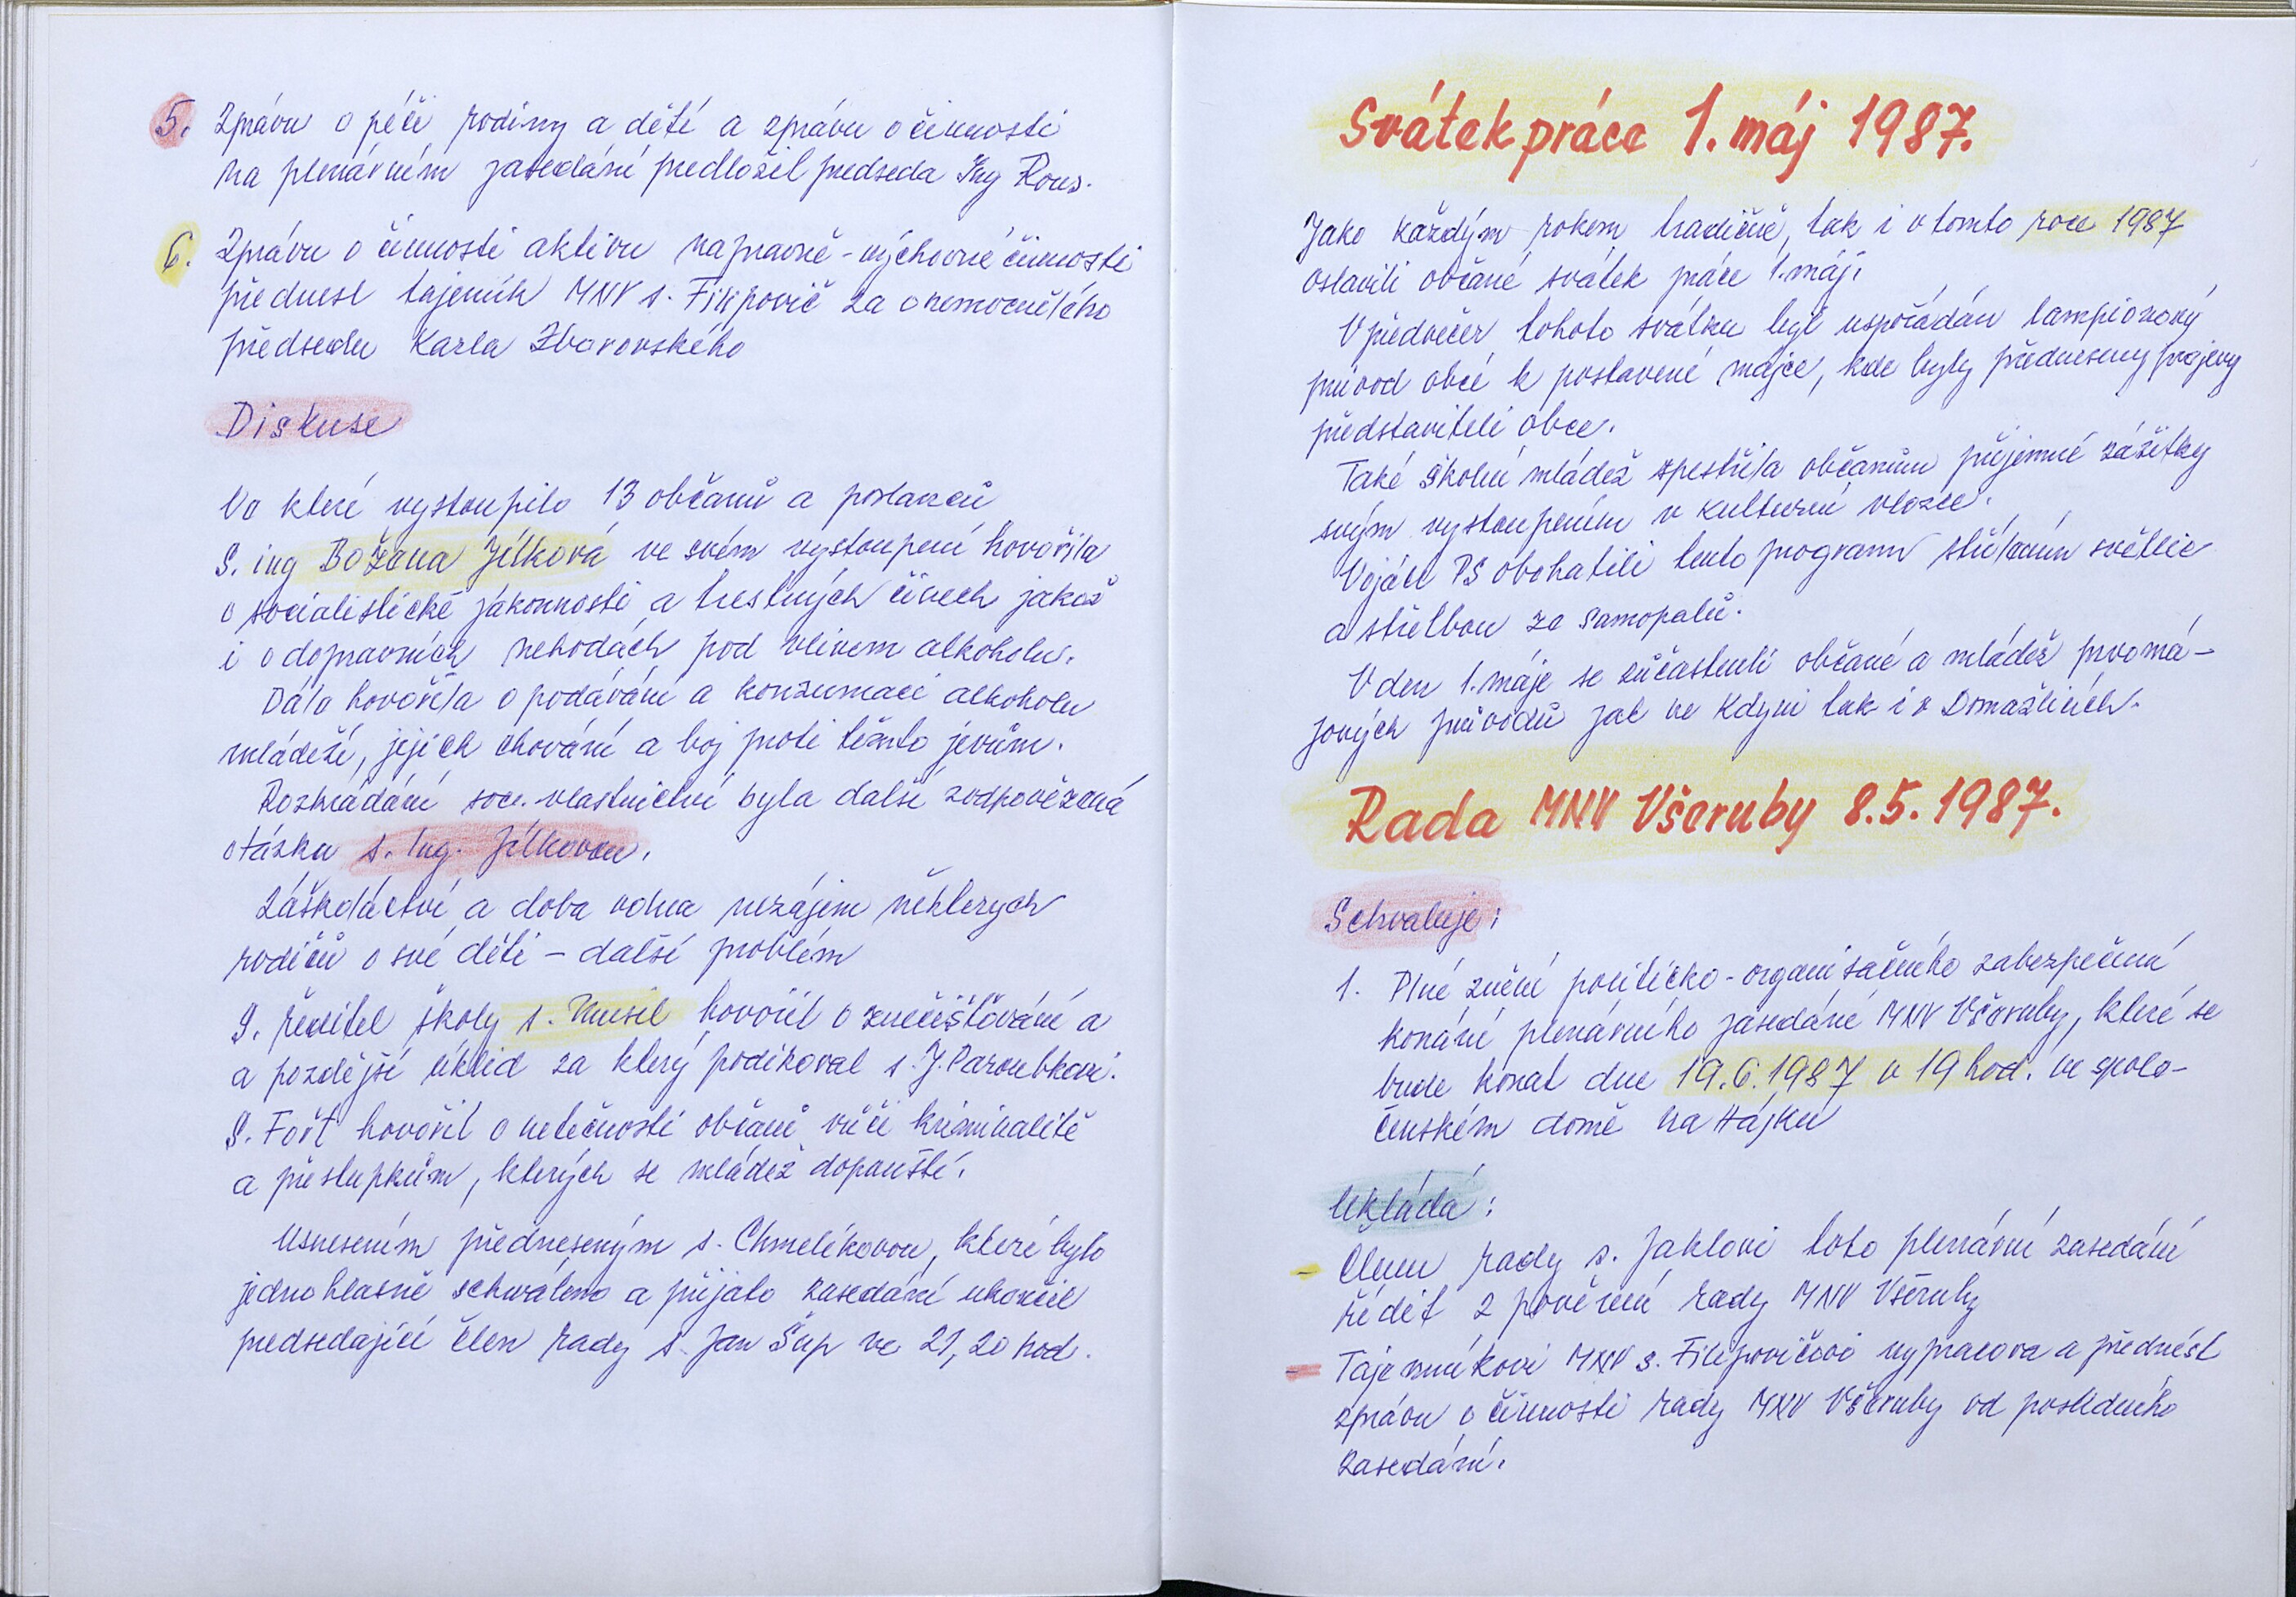 5. Zprávu o péči rodiny a dětí a zprávu o činnosti
na plenárním zasedání předložil předseda Ing Rous.
6. Zprávu o činnosti aktivu nápravně-výchovné činnosti
přednesl tajemník MNV s. Filipovič za onemocnělého
předsedu Karla Zborovského
Diskuse
Ve které vystoupilo 13 občanů a poslanců
S. ing Božena Jílková ve svém vystoupení hovořila
o socialistické zákonnosti a trestných činech jakož
i o dopravních nehodách pod vlivem alkoholu.
Dále hovořila o podávání a konzumaci alkoholu
mládeží, jejich chování a boj proti těmto jevům.
Rozkrádání soc. vlastnictví byla další zodpovězená
otázka s. Ing. Jílkovou.
Záškoláctví a doba volna nezájem některých
rodičů o své děti – další problém
S. ředitel školy s. Musil hovořil o znečišťování a
a pozdější úklid za který poděkoval s. J. Paroubkovi.
S. Fořt hovořil o netečnosti občanů vůči kriminalitě
a přestupkům, kterých se mládež dopouští.
Usnesením předneseným s. Chmelíkovou, které bylo
jednohlasně schváleno a přijato zasedání ukončil
předsedající člen rady s. Jan Šup ve 21,20 hod.
Svátek práce 1. máj 1987.
Jako každým rokem tradičně, tak i v tomto roce 1987
oslavili občané svátek práce 1. máj.
V předvečer tohoto svátku byl uspořádán lampionový
průvod obcí k postavené májce, kde byly předneseny projevy
představiteli obce.
Také školní mládež zpestřila občanům příjemné zážitky
svým vystoupením v kulturní vložce.
Vojáci PS obohatili tento program střílením světlic
a střelbou ze samopalů.
V den 1. máje se zúčastnili občané a mládež prvomá-
jových průvodů jak ve Kdyni tak i v Domažlicích.
Rada MNV Všeruby 8.5.1987.
Schvaluje:
1. Plné znění politicko-organisačního zabezpečení
konání plenárního zasedání MNV Všeruby, které se
bude konat dne 19.6.1987 v 19 hod. ve spole-
čenském domě na Hájku
Ukládá:
– Členu rady s. Jaklovi toto plenární zasedání
řídit z pověření rady MNV Všeruby
– Tajemníkovi MNV s. Filipovičovi vypracova a přednést
zprávu o činnosti rady MNV Všeruby od posledního
zasedání.